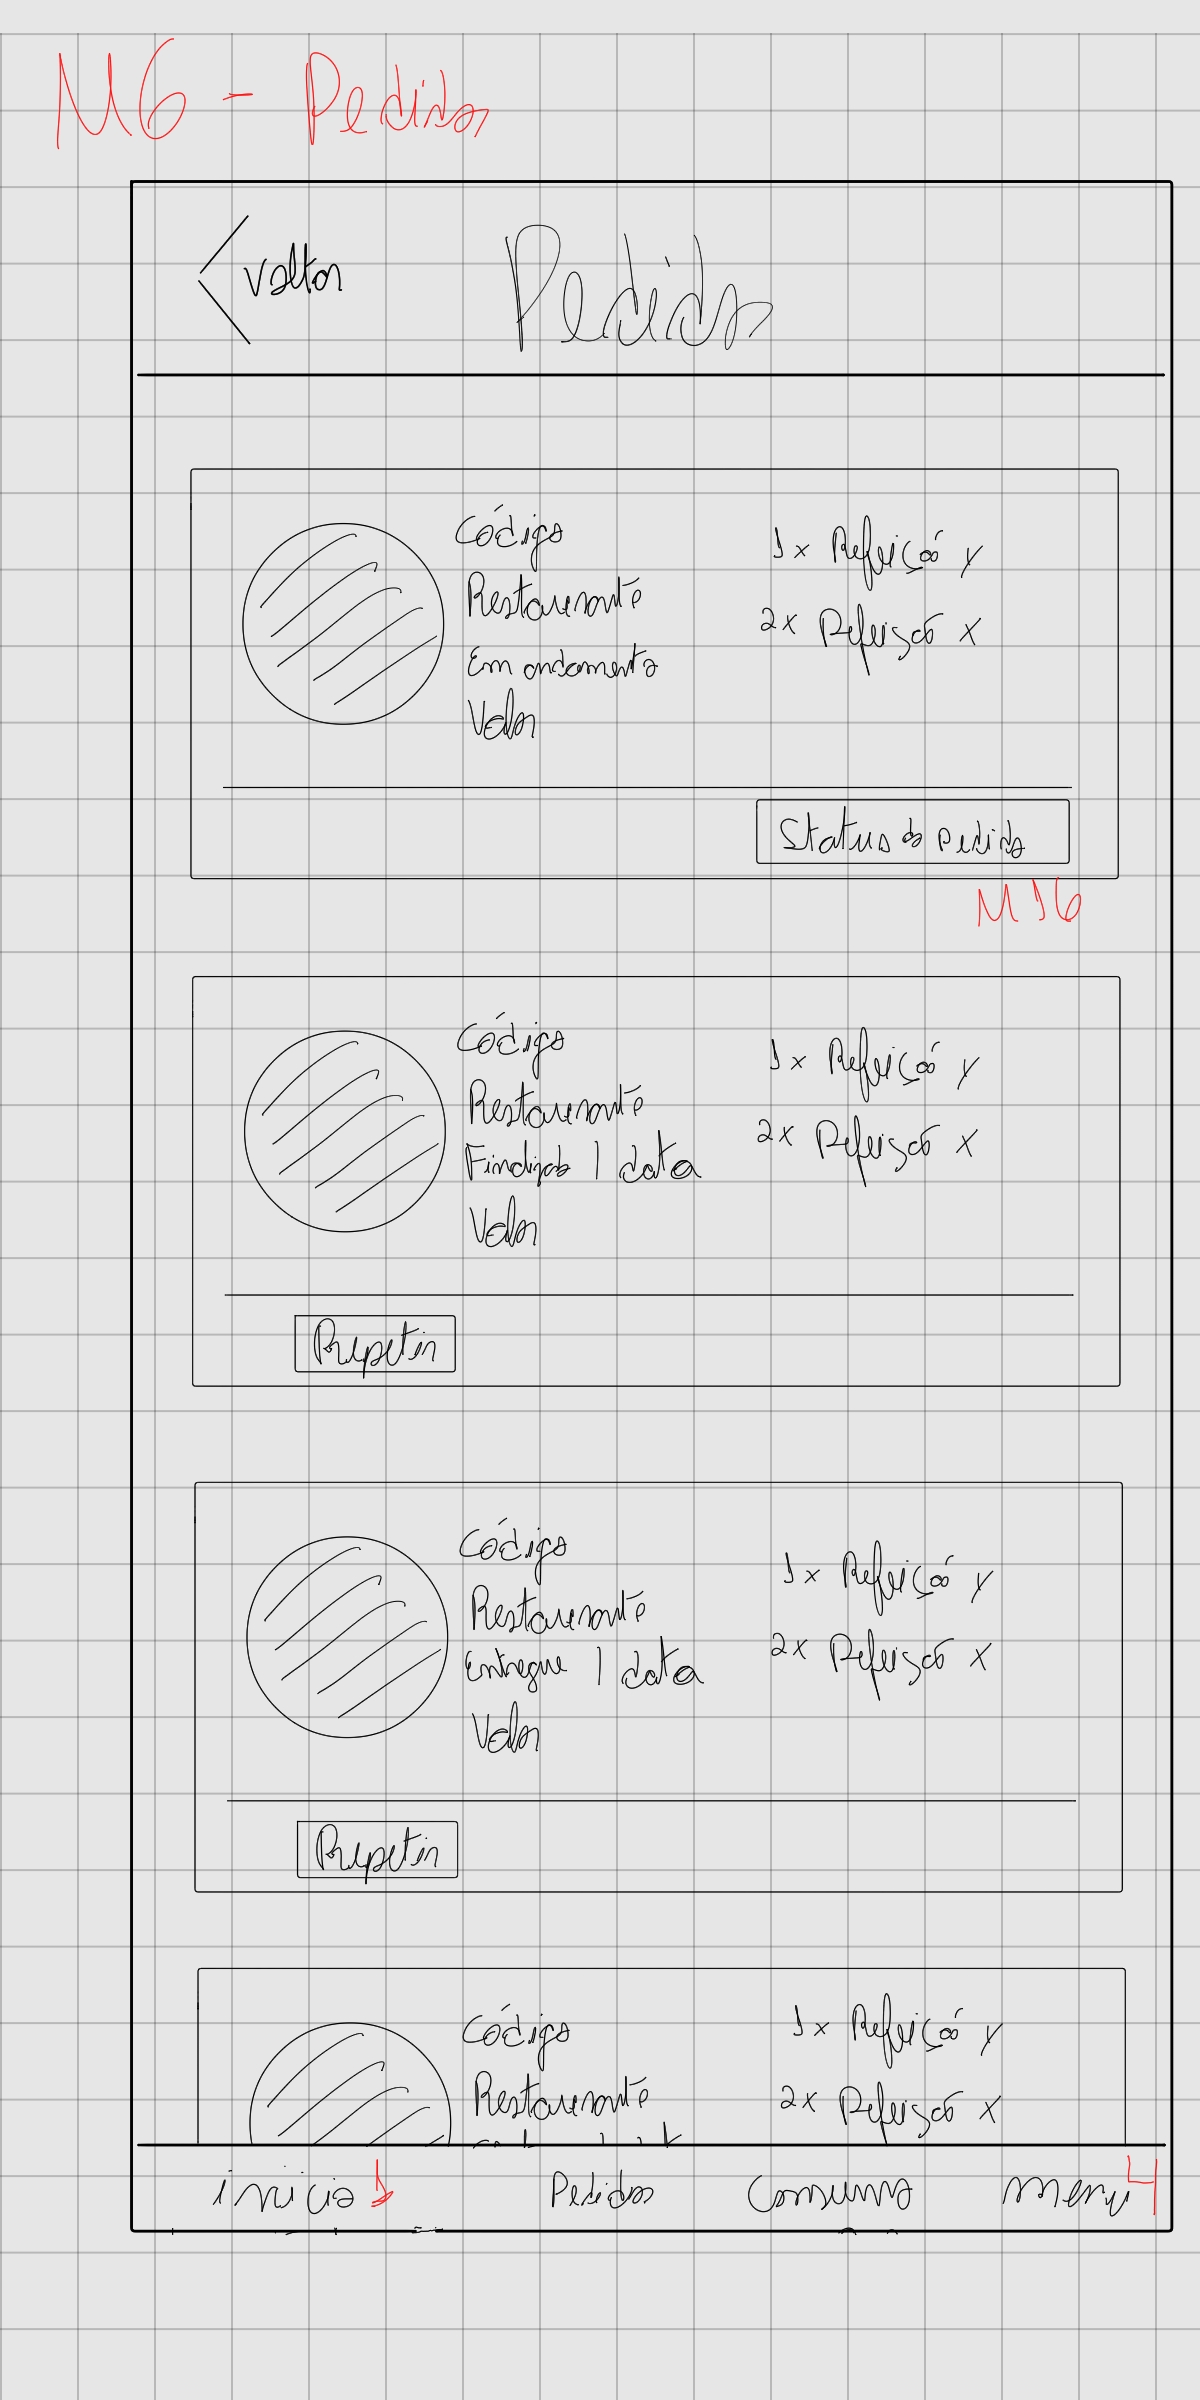 M6 - Pedidos
Voltar
Pedidos
Código
Restaurante
Em andamento
Valor
1x Refeição y
2x Refeição x
Status do pedido
M16
Código
Restaurante
Finalizado | data
Valor
1x Refeição y
2x Refeição x
Repetir
Código
Restaurante
Entregue | data
Valor
1x Refeição y
2x Refeição x
Repetir
Código
Restaurante
1x Refeição y
2x Refeição x
início 1 Pedidos Consumo menu 4